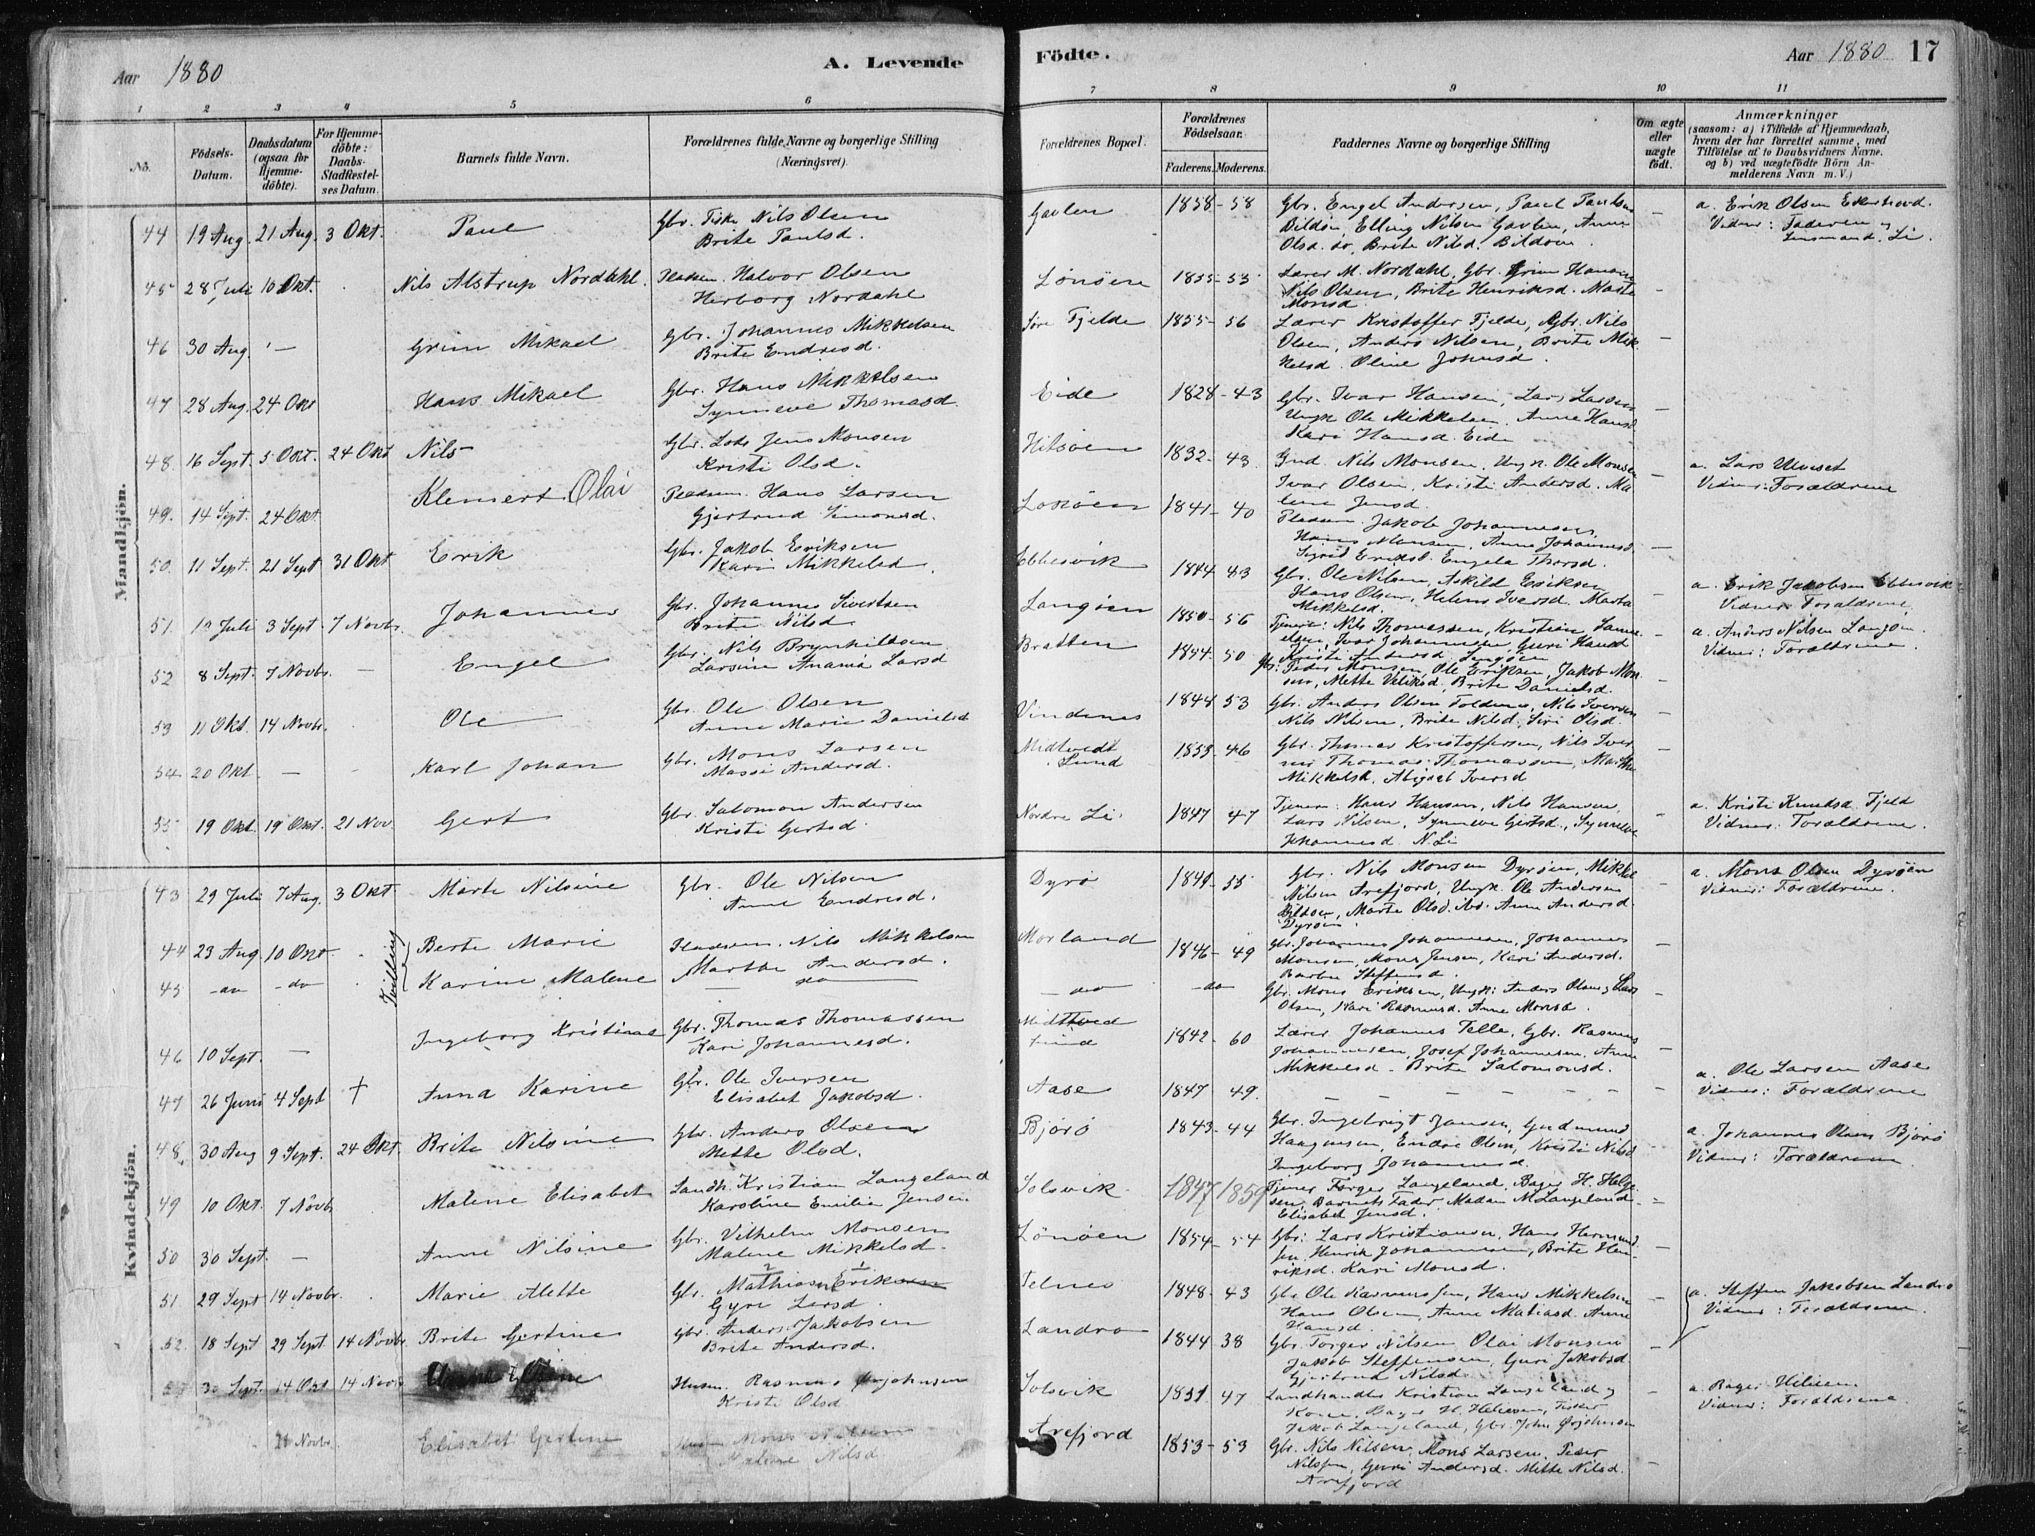 Aar 1880
A. Levende
Födte.
Aar 1880
17
1 2 3 4 5 6 7 8 9 10 11
No.
Födsels-Datum.
Daabsdatum (ogsaa for Hjemmedöbte).
For Hjemmedöbte: Daabs-Stadfæstelses Datum.
Barnets fulde Navn.
Forældrenes fulde Navne og borgerlige Stilling (Næringsvei).
Forældrenes Bopæl.
Forældrenes Födselsaar.
Faderens. Moderens.
Faddernes Navne og borgerlige Stilling
Om ægte eller uægte födt.
Anmærkninger
(saasom: a) i Tilfælde af Hjemmedaab, hvem der har forrettet samme, med Tilföielse af to Daabsvidners Navne, og b) ved uægtefödte Börn Anmelderens Navn m. V.)
Mandkjön.
44 19 Aug. 21 Aug. 3 Okt. Paul Gbr. Fisk. Nils Olsen
Brite Paulsd. Gavlen 1858-58 Gbr. Engel Andersen, Paul Paulsen
Bildöen, Elling Nilsen Gavlen, Anne
Olsd. do, Brite Nilsd. Bildöen. a. Erik Olsen Ekerhovd.
Vidner: Faderen og
Lensmand Li.
45 28 Juli 10 Okt. Nils Alstrup Nordahl. Pladsm. Halvor Olsen
Herborg Nordahl Lönöen 1855-53 Lærer M. Nordahl, Gbr. Grim Hansen
Nils Olsen, Brite Henriksd. Marte
Monsd.
46 30 Aug - Grim Mikael Gbr. Johannes Mikkelsen
Brite Endresd. Söre Fjelde 1855-56 Lærer Kristoffer Fjelde, Gbr. Nils
Olsen, Anders Nilsen, Brite Mik
kelsd. Oline Johnsd.
47 28 Aug. 24 Okt Hans Mikael Gbr. Hans Mikkelsen
Synneve Thomasd. Eide 1828-43 Gbr. Ivar Hansen, Lars Larsen
Ungk Ole Mikkelsen, Anne Hansd
Kari Hansd. Eide
48. 16 Sept. 5 Okt. 24 Okt Nils Gbr. Lods Jens Monsen
Kristi Olsd. Hilsöen 1832-43 Gmd. Nils Monsen, Ungk. Ole Monsen
Ivar Olsen, Kristi Andersd. Ma
lene Jensd. a. Lars Ulveset
Vidner: Forældrene
49. 14 Sept. 24 Okt. Klemert Olai Pladsm. Hans Larsen
Gjertrud Simonsd. Losöen 1841-40 Pladsm. Jakob Johannesen,
Hans Monsen, Anne Johannesd.
Sigrid Eriksd. Engele Thorsd.
50. 11 Sept. 21 Sept 31 Okt Erik Gbr. Jakob Eriksen
Kari Mikkelsd. Ebbesvik 1844 43 Gbr. Ole Nilsen, Askild Eriksen
Hans Olsen, Helene Iversd. Marta
Mikkelsd. a. Erik Jakobsen Ebbesvik
Vidner: Forældrene.
51. 12 Juli 3 Sept 7 Novbr. Johannes Gbr. Johannes Sivertsen
Brite Nilsd Langöen 1850-56 Tjenere: Nils Thomassen, Kristian Samu
elsen, Ivar Johannesen, Guri Hansd
Kristi Andersd. Langöen a. Anders Nilsen Langöen.
Vidner: Forældrene.
52 8 Sept. 7 Novbr. - Engel Gbr. Nils Brynhildsen
Larsine Anania Larsd Bratten 1854-50 Gbr. Peder Monsen, Ole Eriksen, Jakob Mon
sen, Mette Villiksd, Brite Danielsd.
53 11 Okt. 14 Novbr. Ole Gbr. Ole Olsen
Anne Marie Danielsd Vindenes 1844 53 Gbr. Anders Olsen Toldnes, Nils Iversen
Nils Nilsen, Brite Nilsd, Siri Olsd.
54 20 Okt. - - Karl Johan Gbr. Mons Larsen
Massi Andersd. Midtvedt
Sund 1853-46 Gbr. Thomas Kristoffersen, Nils Iver
sen Thomas Thomassen, Marthe
Mikkelsd, Abigael Iversd
55 19 Okt. 19 Okt. 21 Nov. Gert Gbr. Salomon Andersen
Kristi Gertsd. Nordre Li. 1847 47 Tjenere: Hans Hansen, Nils Hansen
Lars Nilsen, Synneve Gertsd., Synneve
Johannesd N. Li a. Kristi Knudsd. Fjeld
Vidner: Forældrene.
Kvindekjön.
43 29 Juli 7 Aug. 3 Okt Marte Nilsine Gbr. Ole Nilsen
Anne Endresd. Dyrö 1849-55 Gbr. Nils Monsen Dyröen, Mikkel
Nilsen Arefjord, Ungk. Ole Andersen
Bildöen, Marte Olsd. ibd. Anne Andersd.
Dyröen. a. Mons Olsen Dyröen
Vidner: Forældrene.
Tvilling
44 23 Aug. 10 Okt. Berte Marie Pladsm. Nils Mikkelsen
Marthe Andersd. Morland 1846-49 Gbr. Johannes Johannesen, Johannes
Monsen, Mons Jensen, Kari Andersd.
Barbra Steffensd.
45 - do - do Karine Malene - do - - do - do Gbr. Mons Eriksen, Ungk: Anders Olsen, Lars
Olsen, Kari Rasmusd. Anne Monsd.
46 10 Sept. - Ingeborg Kristine Gbr. Thomas Thomassen
Kari Johannesd. Midttved
Sund 1842-60 Lærer Johannes Telle, Gbr. Rasmus
Johannesen, Josef Johannesen, Anne
Mikkelsd - Brite Salomonsd.
47 26 Juni 4 Sept † Anna Karine Gbr. Ole Iversen
Elisabet Jakobsd. Aase 1847 49. - - - - - a. Ole Larsen Aase
Vidner: Forældrene
48. 30 Aug 9 Sept. 24 Okt. Brite Nilsine Gbr. Anders Olsen
Mette Olsd. Björö 1843-44 Gbr. Ingebrigt Jansen, Gudmund
Haagensen, Endre Olsen, Kristi Nilsd
Ingeborg Johannesd. a. Johannes Olsen Björö
Vidner: Forældrene
49 10 Okt. 7 Novb Malene Elisabet Landh. Kristian Langeland
Karoline Emilie Jensen Solsvik 1847 1859 Tjener Torger Langeland, Bager H. Helge
sen, Barnets Fader, Madam M Langeland
Elisabet Jensd.
50 30 Sept. - Anne Nilsine Gbr. Vilhelm Monsen
Malene Mikkelsd. Lönöen 1854-54 Gbr: Lars Kristiansen, Hans Hermund
sen, Henrik Johannesen, Brite Hen
riksd. Kari Monsd.
51. 29 Sept 14 Novbr. Marie Alette Gbr. Mathias Eriksen
Gyri Larsd. Telnes 1848-43 Gbr Ole Rasmussen, Hans Mikkelsen
Hans Olsen, Anne Matiasd. Anne
Hansd.
52. 18 Sept 29 Sept 14 Novbr. Brite Gertine Gbr. Anders Jakobsen
Brite Andersd. Landro 1844 38 Gbr. Torger Nilsen Olai Monsen
Jakob Steffensen, Guri Jakobsd
Gjertrud Nilsd a. Steffen Jakobsen Landro
Vidner: Forældrene.
53 30 Sept. 14 Okt 14 Novb Husm. Rasmus Örjohnsen
Kriste Olsd Solsvik 1851 47 Landhandler Kristian Langeland og
Kone, Bager H. Heliesen, Fisker
Jakob Langeland, Gbr. John Örjohnsen a. Bager Heliesen
Vidner: Forældrene
21 Novbr. Elisabet Gertine Husm Mons Nilsen
Malene Nilsd Arefjord 1853-53 Gbr. Nils Nilsen, Mons Larsen, Peder
Nilssen, Guri Andersd. Mette Nilsd.
Arefjord